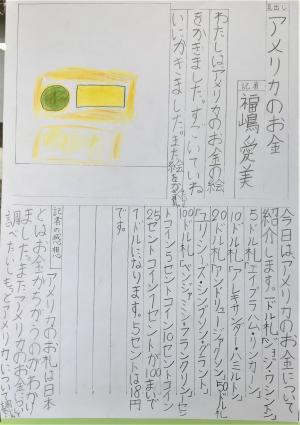 見出し
アメリカのお金
記者
福嶋愛美
わたしはアメリカのお金の絵
をかきました。すごいていね
いにかきました。また絵をかき
今日はアメリカのお金について
紹介します。1ドル札「ジョージ・ワシントン」
5ドル札「エイブラハム・リンカーン」
10ドル札「アレキサンダー・ハミルトン」
20ドル札「アンドリュー・ジャクソン」50ドル札
「ユリシーズ・シンプソン・グラント」
100ドル札「ベンジャミン・フランクリン」1セン
トコイン5セントコイン10セントコイン
25セントコイン1セントが100まいで
1ドルになります。5セントは8円
です。
記者の感想
アメリカのお札は日本
とはお金がちがうのがわかり
ました。またアメリカのお金につい
調べたいしもっとアメリカについて調べ